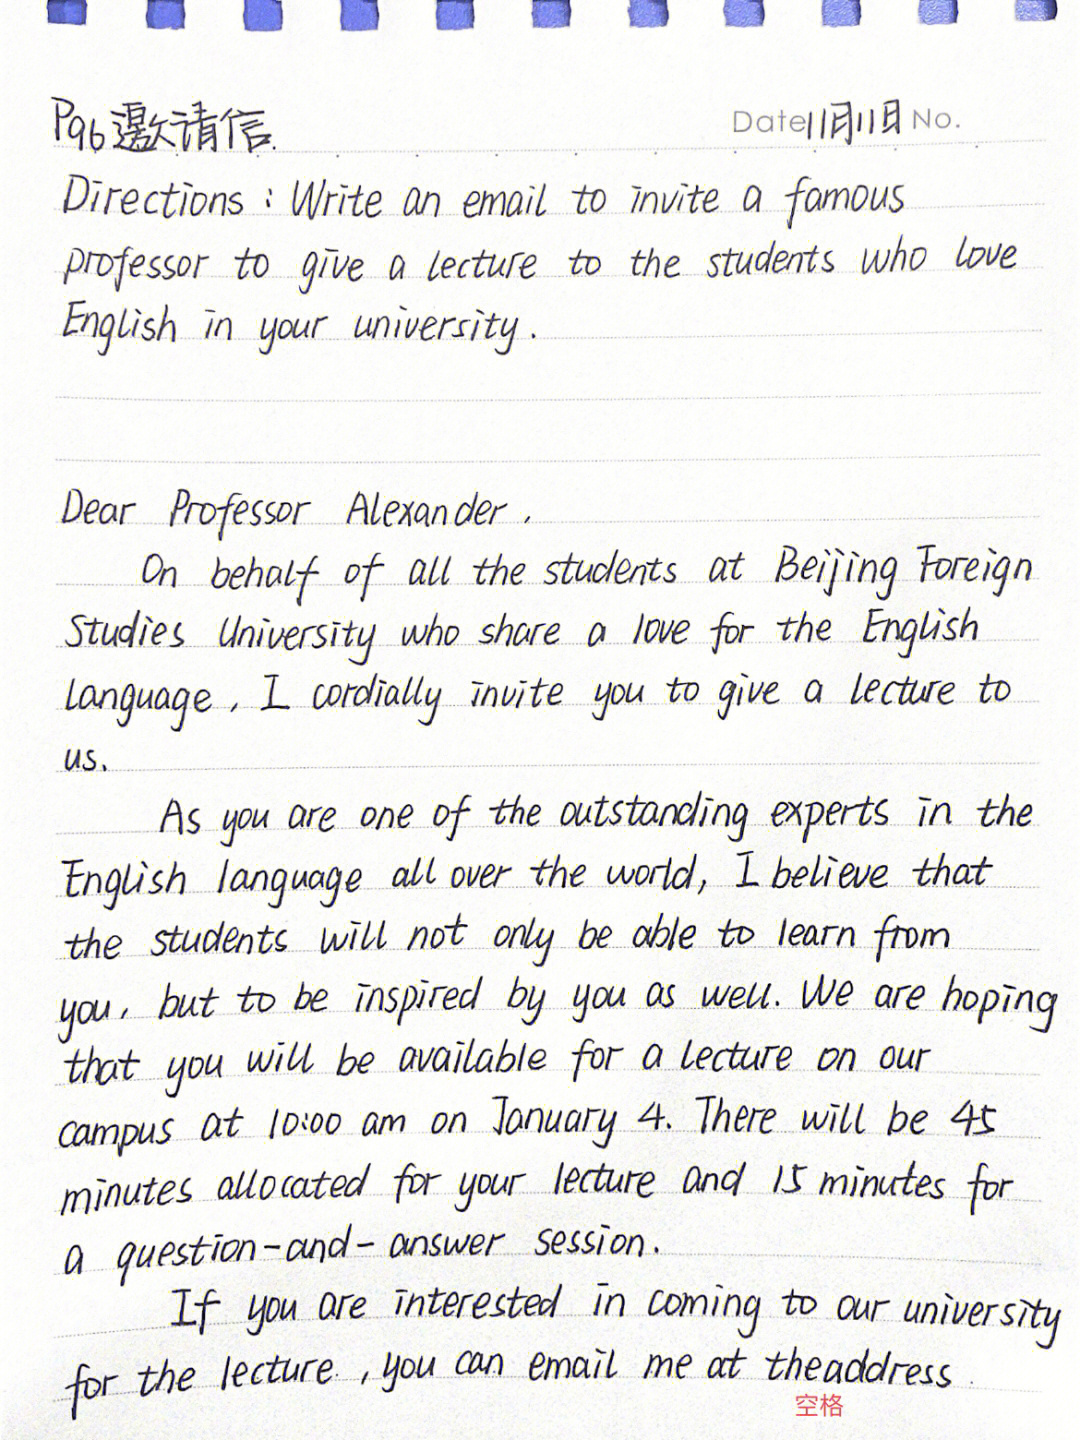 P96邀请信.
Date 11月11日 No.
Directions : Write an email to invite a famous
professor to give a lecture to the students who love
English in your university.
Dear Professor Alexander,
On behalf of all the students at Beijing Foreign
Studies University who share a love for the English
language, I cordially invite you to give a lecture to
us.
As you are one of the outstanding experts in the
English language all over the world, I believe that
the students will not only be able to learn from
you, but to be inspired by you as well. We are hoping
that you will be available for a lecture on our
campus at 10:00 am on January 4. There will be 45
minutes allocated for your lecture and 15 minutes for
a question-and-answer session.
If you are interested in coming to our university
for the lecture , you can email me at theaddress
空格